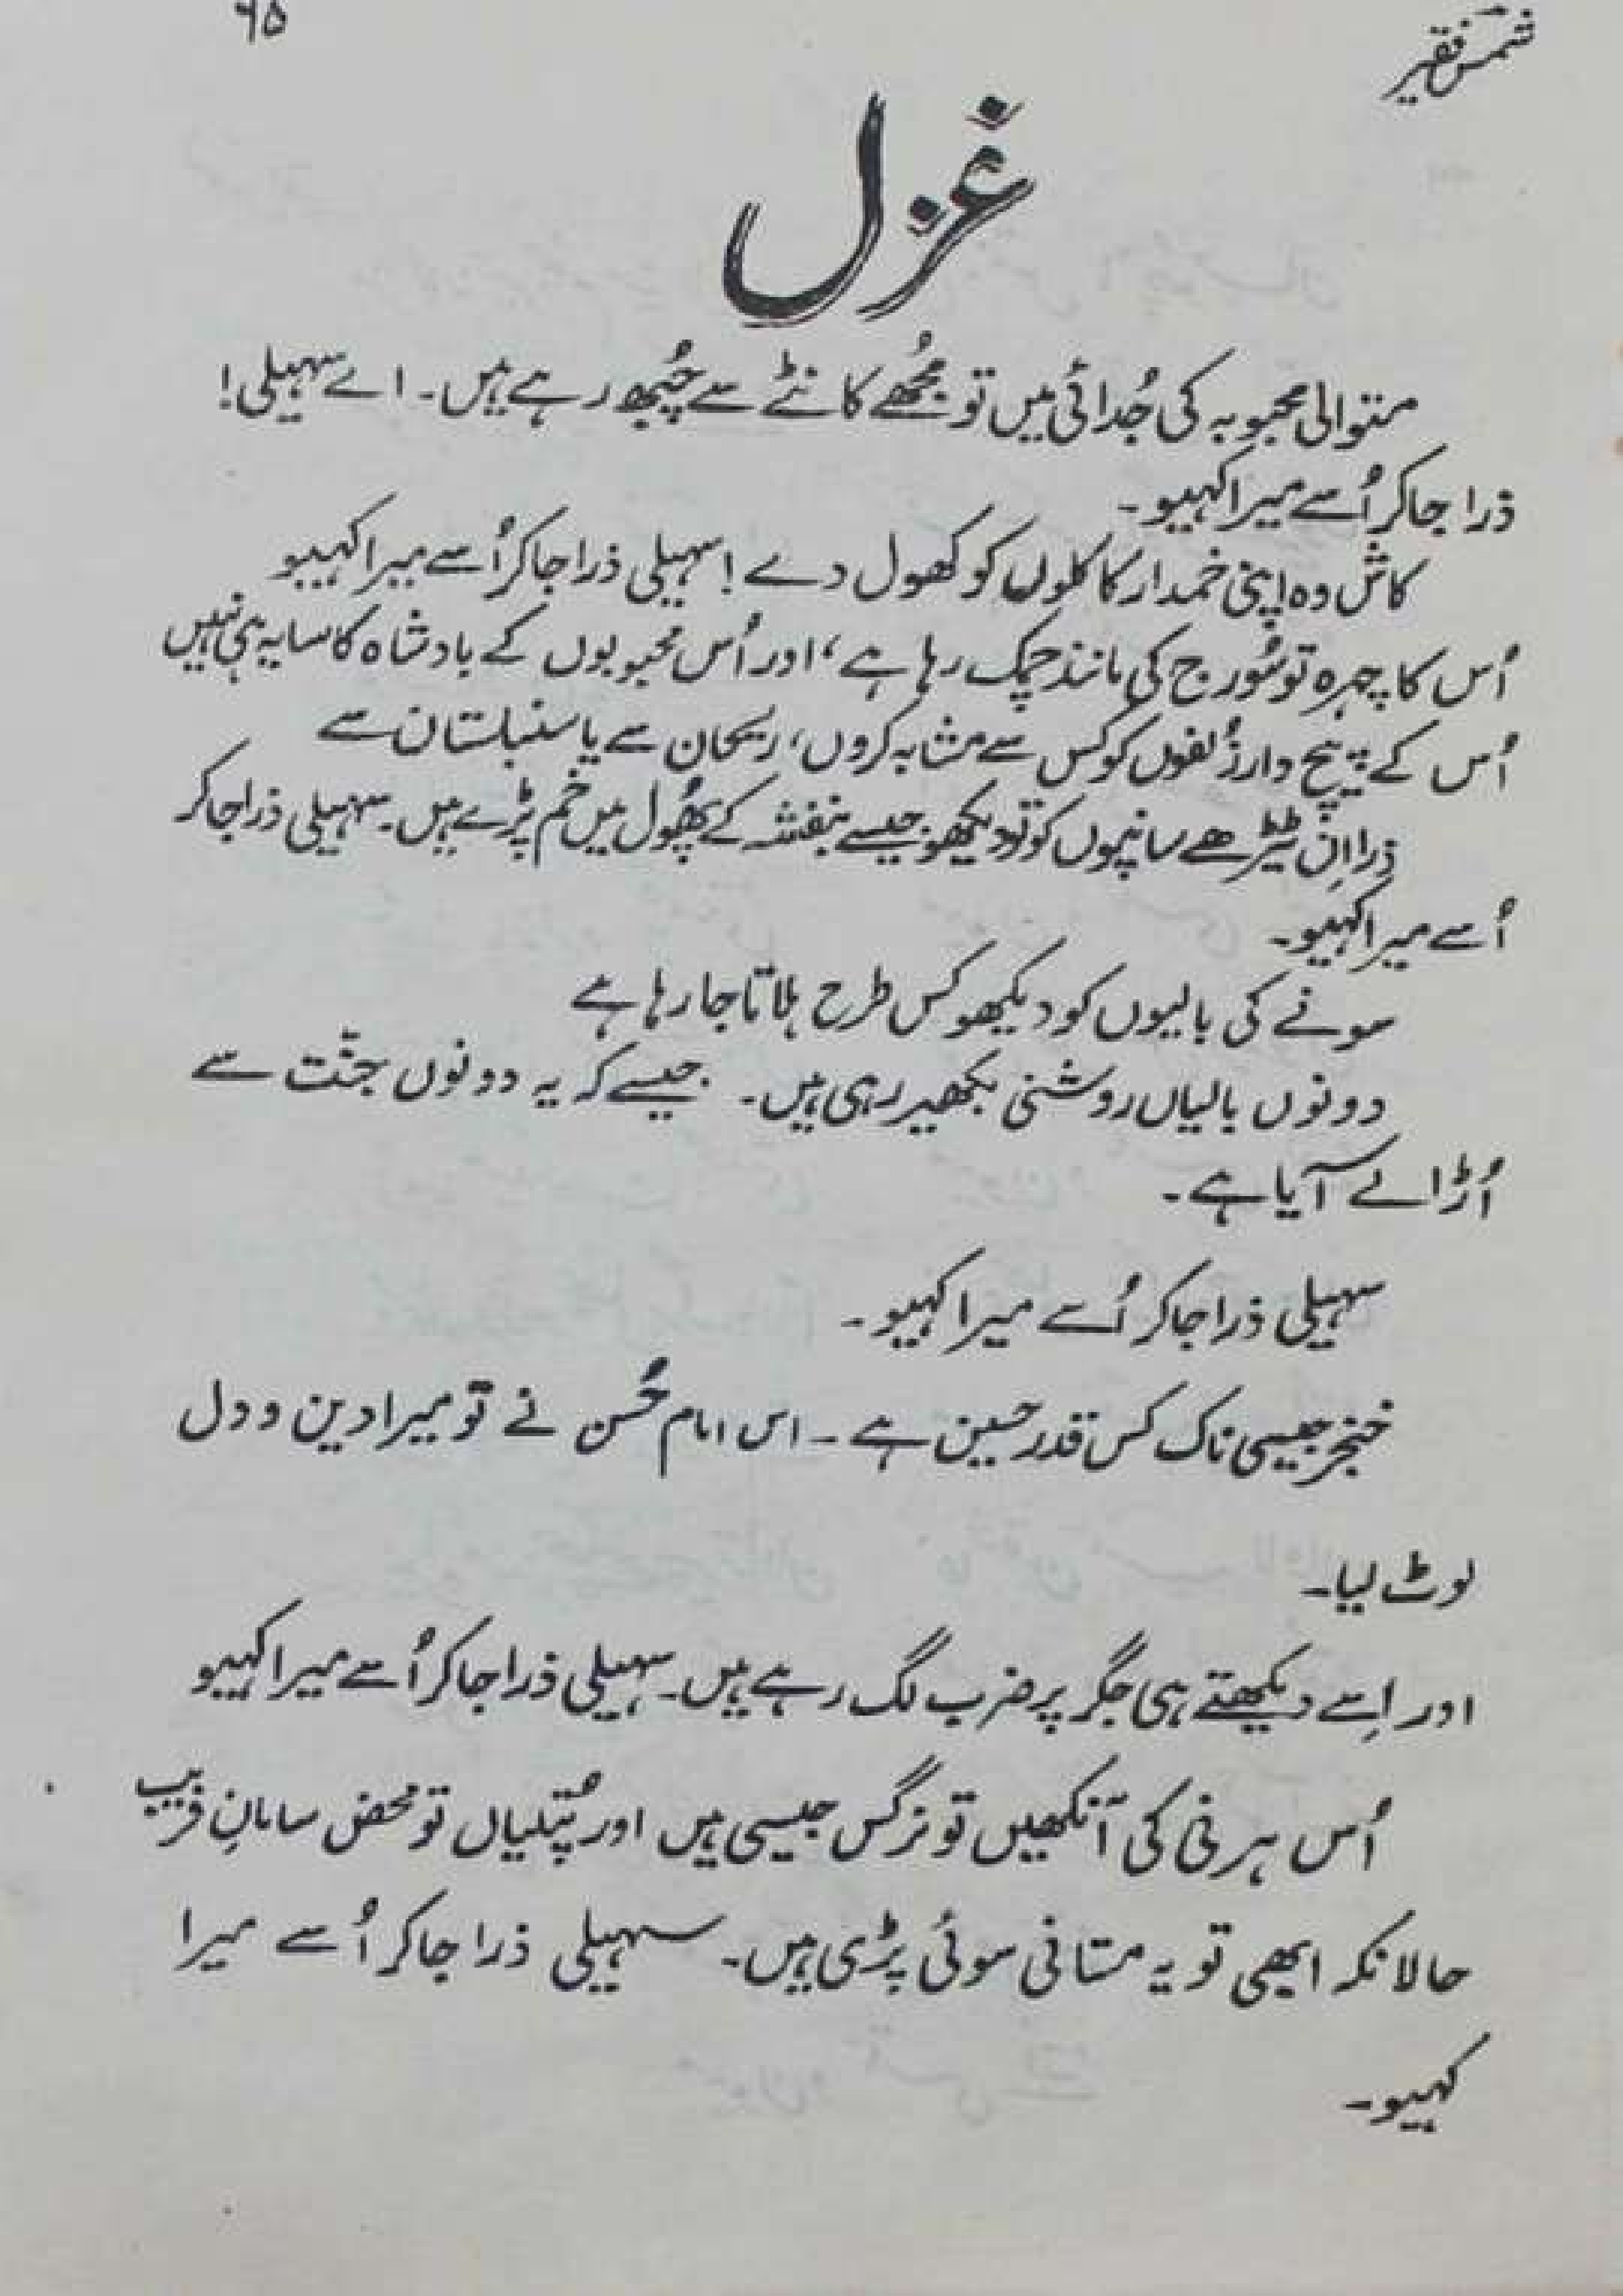 شمس فقیر
۶۵
غزل
متوالی محبوبہ کی جُدائی میں تو مجُھے کانٹے سے چُبھ رہے ہیں۔ اے سہیلی!
ذرا جاکر اُسے میرا کہیو۔
کاش وہ اپنی خمدار کاکلوں کو کھول دے! سہیلی ذرا جاکر اُسے میرا کہیو
اُس کا چہرہ تو سُورج کی مانند چمک رہا ہے، اور اُس محبوبوں کے بادشاہ کا سایہ ہی نہیں
اُس کے پیچ دار زُلفوں کو کس سے مشابہ کروں، ریحان سے یا سنبلستان سے
ذرا اِن ٹیڑھے سانپوں کو تو دیکھو جیسے بنفشہ کے پھُول میں خم پڑے ہیں۔ سہیلی ذرا جاکر
اُسے میرا کہیو۔
سونے کی بالیوں کو دیکھو کس طرح ہلاتا جا رہا ہے
دونوں بالیاں روشنی بکھیر رہی ہیں۔ جیسے کہ یہ دونوں جنّت سے
اُڑا لے آیا ہے۔
سہیلی ذرا جاکر اُسے میرا کہیو۔
خنجر جیسی ناک کس قدر حسین ہے۔ اس امام حُسن نے تو میرا دین و دل
لوٹ لیا۔
اور اِسے دیکھتے ہی جگر پر ضرب لگ رہے ہیں۔ سہیلی ذرا جاکر اُسے میرا کہیو
اُس ہرنی کی آنکھیں تو نرگس جیسی ہیں اور پُتلیاں تو محض سامانِ فریب
حالانکہ ابھی تو یہ مستانی سوئی پڑی ہیں۔ سہیلی ذرا جاکر اُسے میرا
کہیو۔